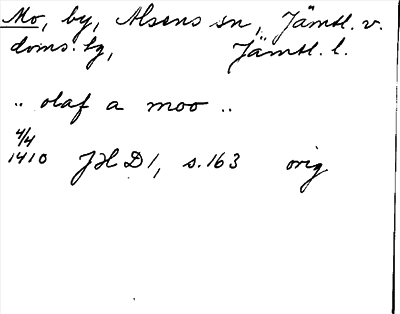 Mo, by, Alsens sn, Jämtl. v.
doms. lg, Jämtl. l.
.. olaf a moo ..
4/4
1410 JHD 1, s. 163 orig